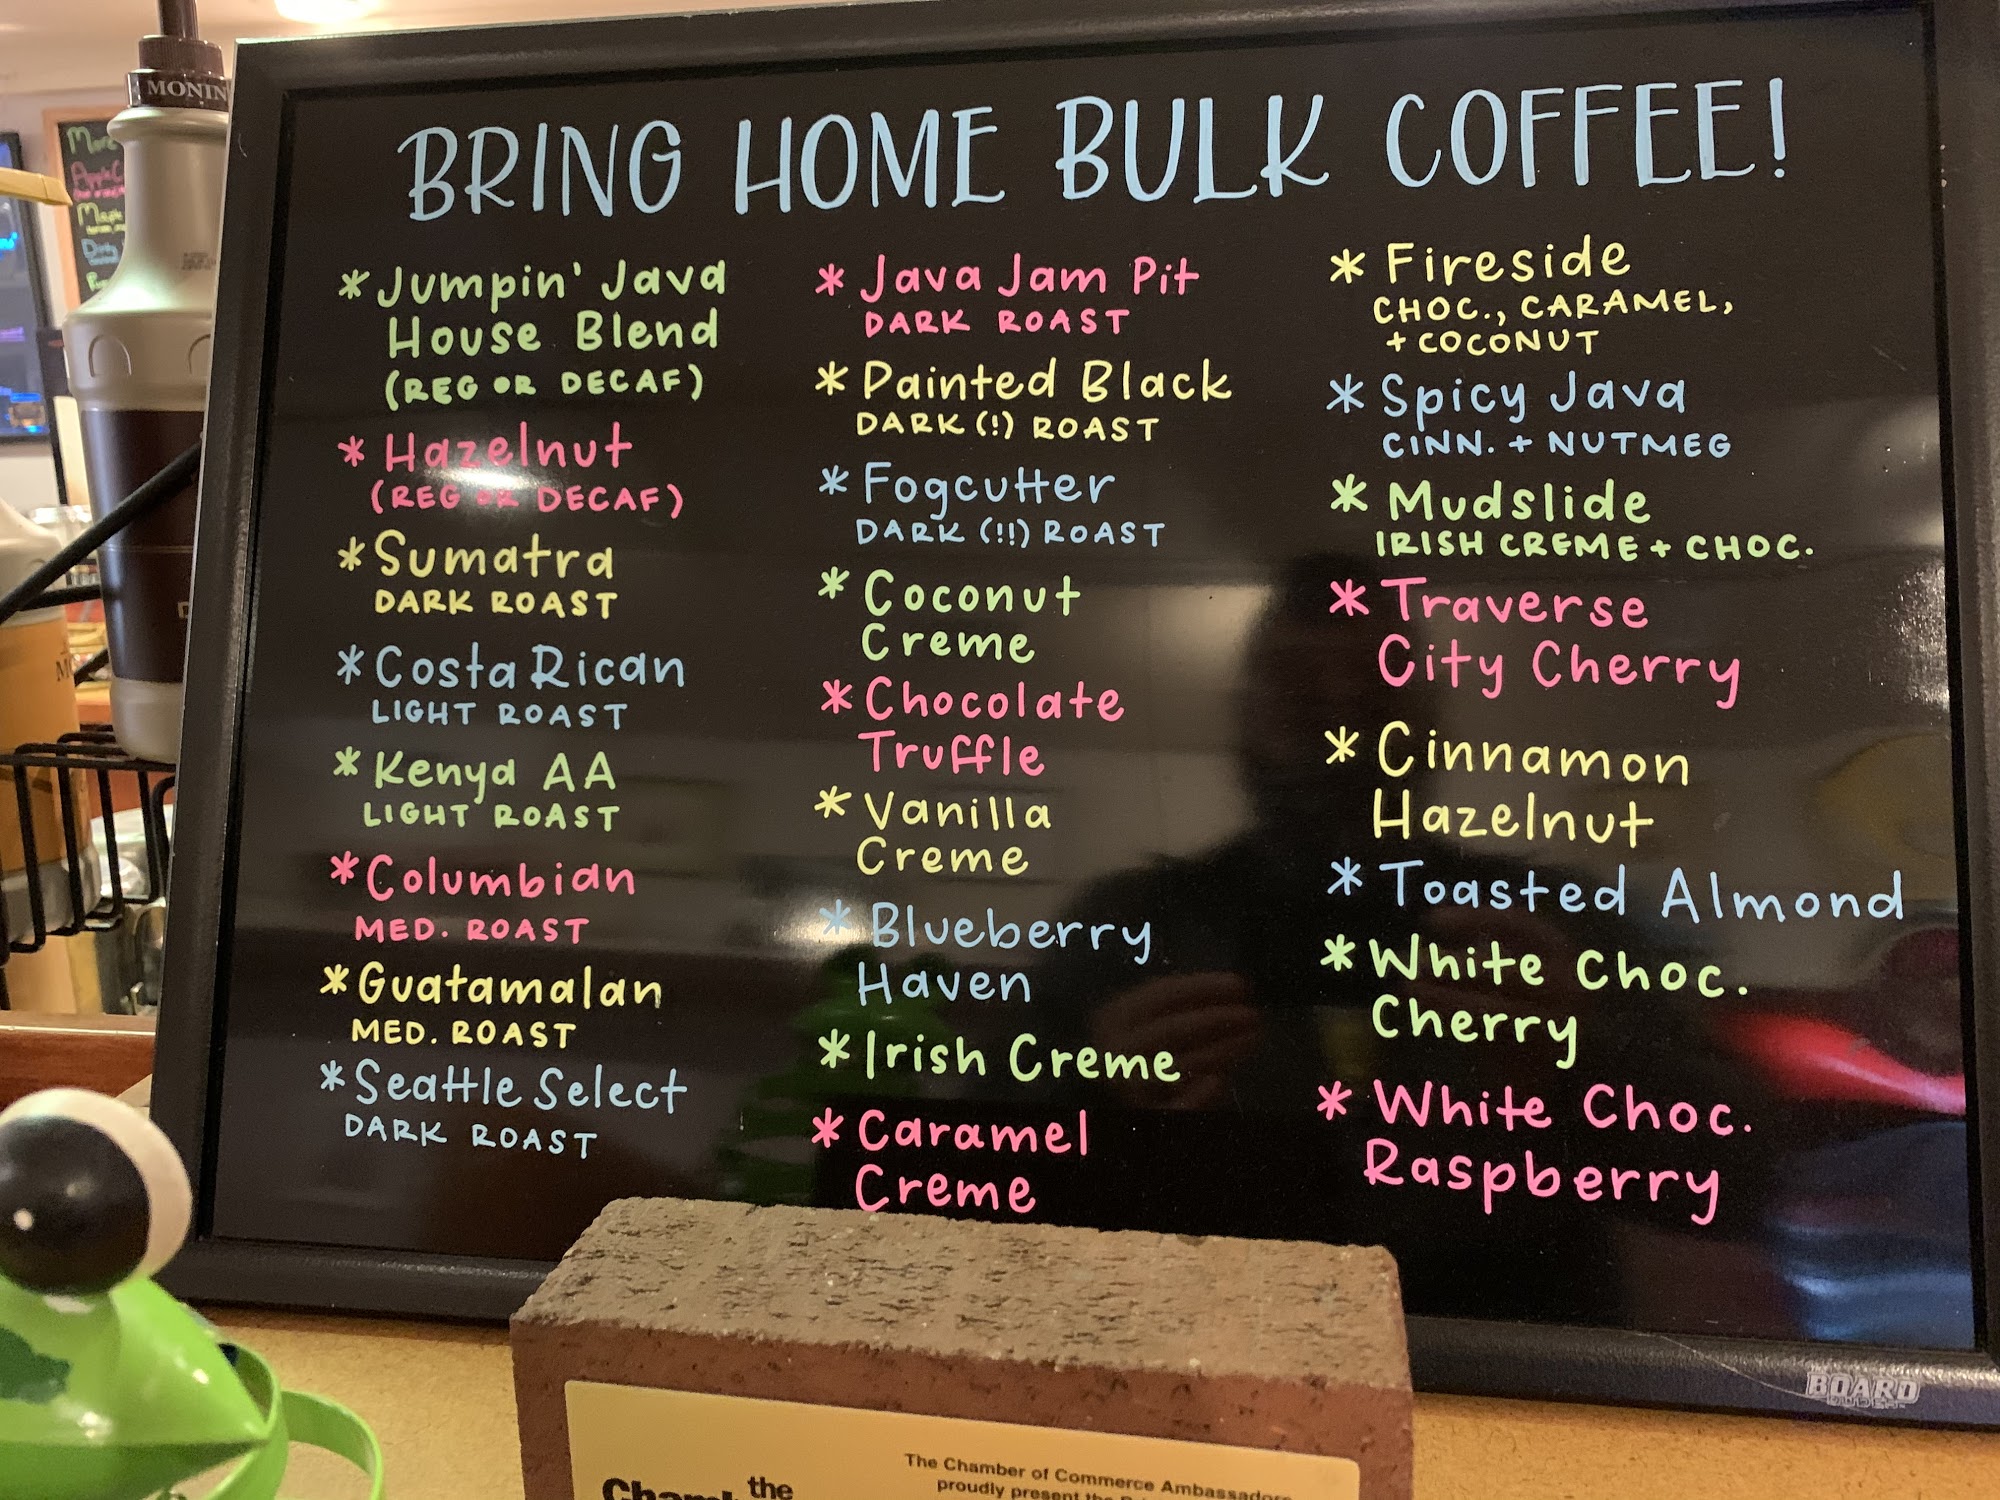 BRING HOME BULK COFFEE!
* Jumpin' Java
House Blend
(REG OR DECAF)
* Hazelnut
(REG OR DECAF)
* Sumatra
DARK ROAST
* Costa Rican
LIGHT ROAST
* Kenya AA
LIGHT ROAST
* Columbian
MED. ROAST
* Guatamalan
MED. ROAST
* Seattle Select
DARK ROAST
* Java Jam Pit
DARK ROAST
* Painted Black
DARK (!) ROAST
* Fogcutter
DARK (!!) ROAST
* Coconut
Creme
* Chocolate
Truffle
* Vanilla
Creme
* Blueberry
Haven
* Irish Creme
* Caramel
Creme
* Fireside
CHOC., CARAMEL,
+ COCONUT
* Spicy Java
CINN. + NUTMEG
* Mudslide
IRISH CREME + CHOC.
* Traverse
City Cherry
* Cinnamon
Hazelnut
* Toasted Almond
* White Choc.
Cherry
* White Choc.
Raspberry
MONIN
BOARD
the
The Chamber of Commerce Ambassadors
proudly present the